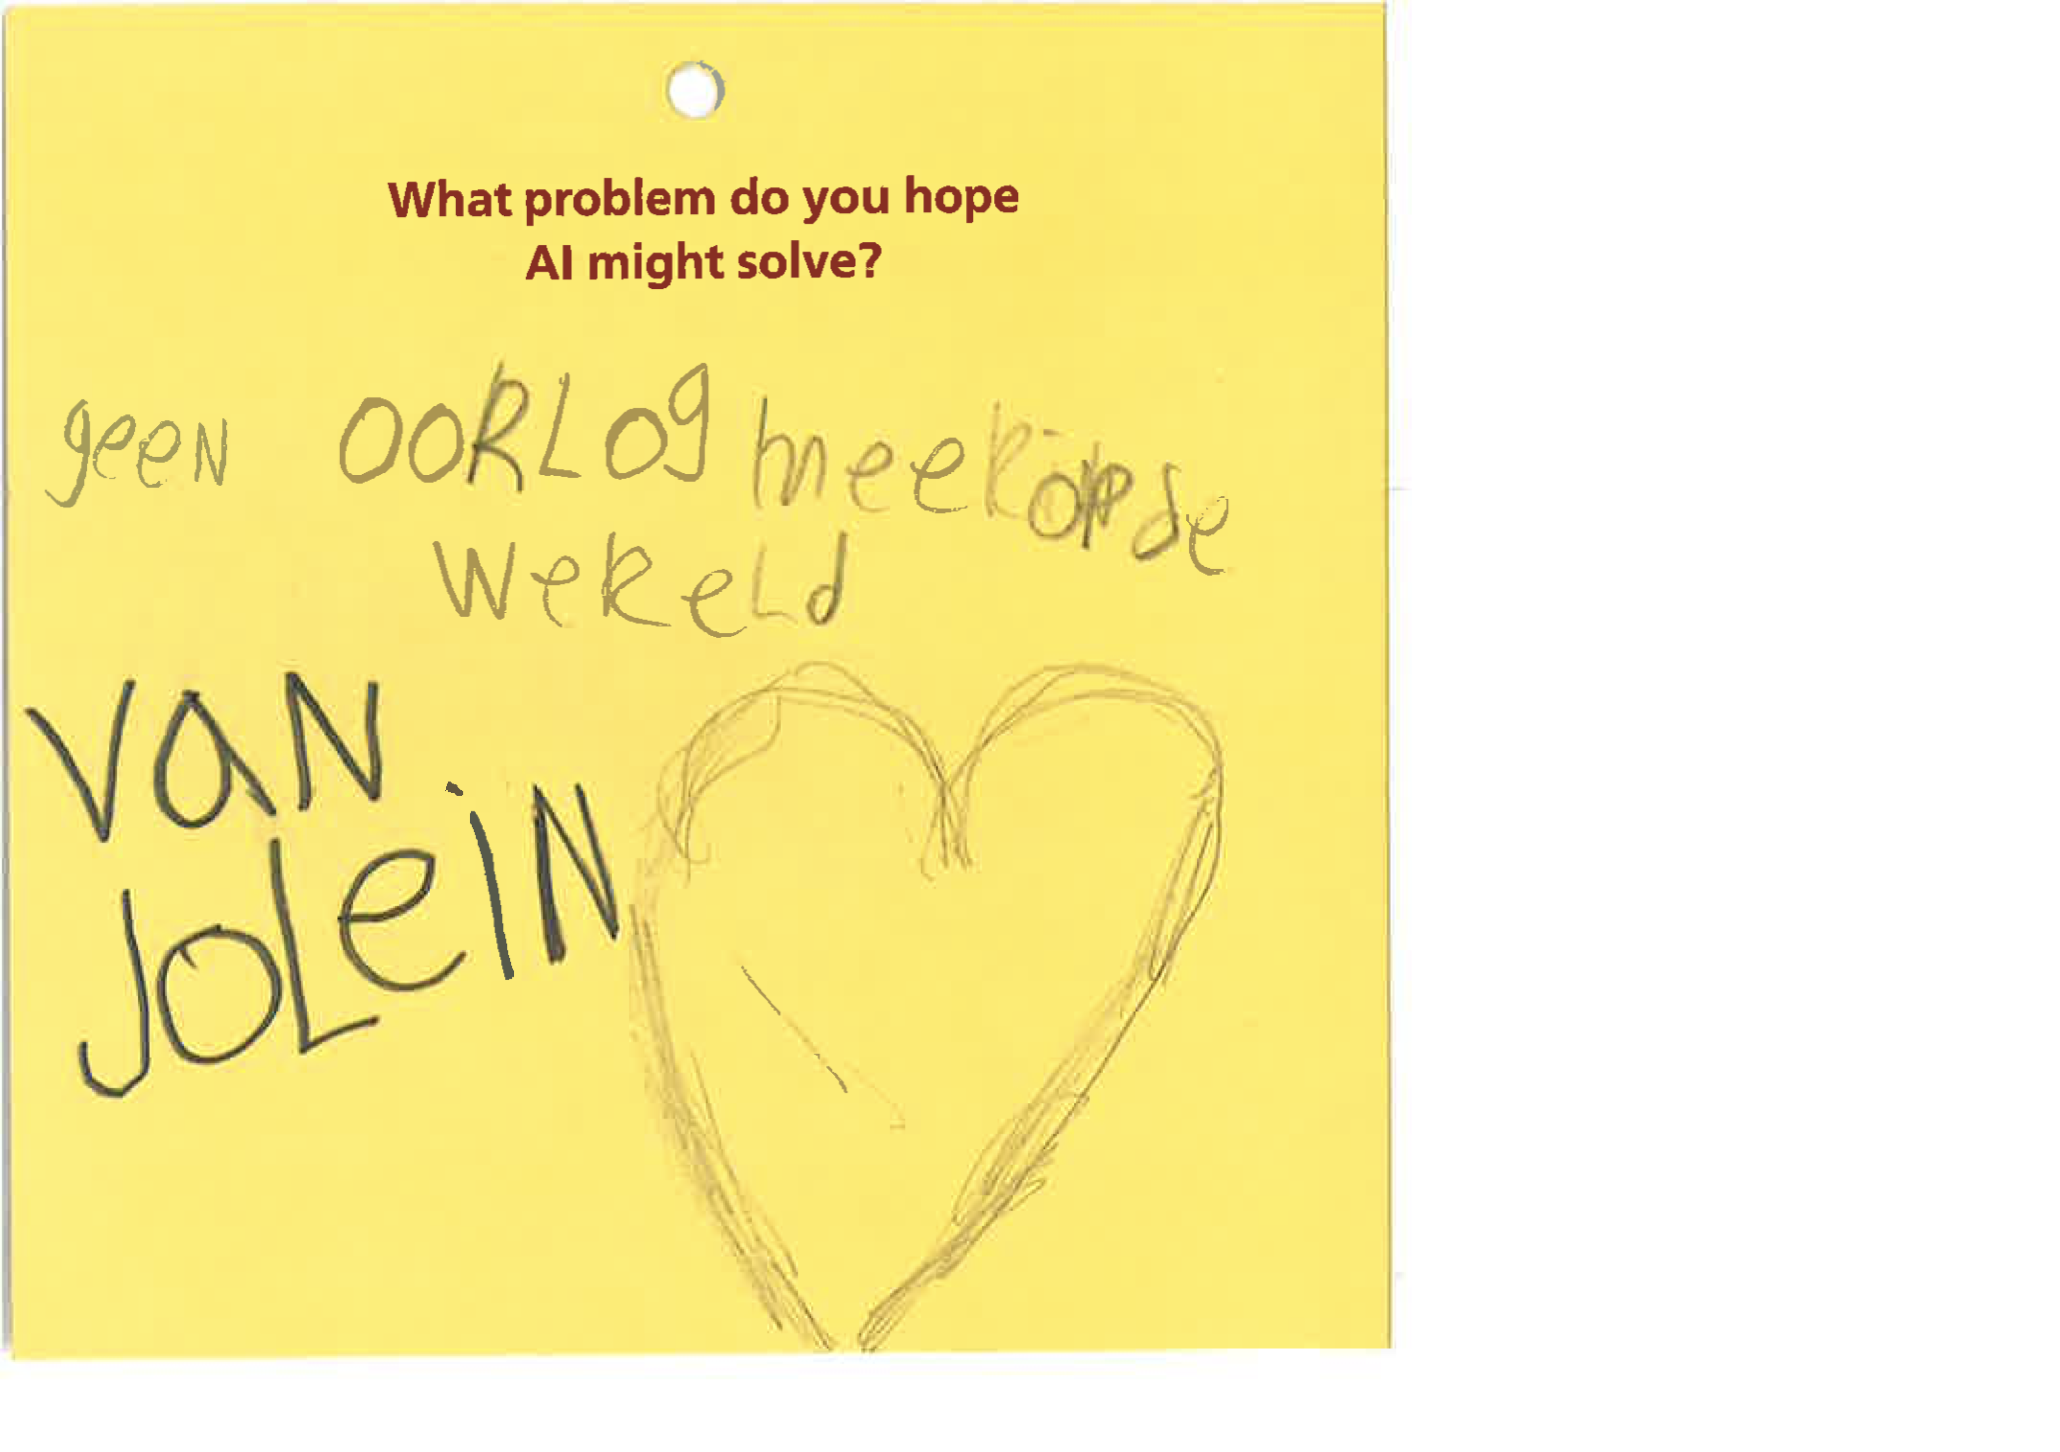 What problem do you hope
AI might solve?
geen OORLOg meeR op de
WeReLd
VaN
JOLeiN